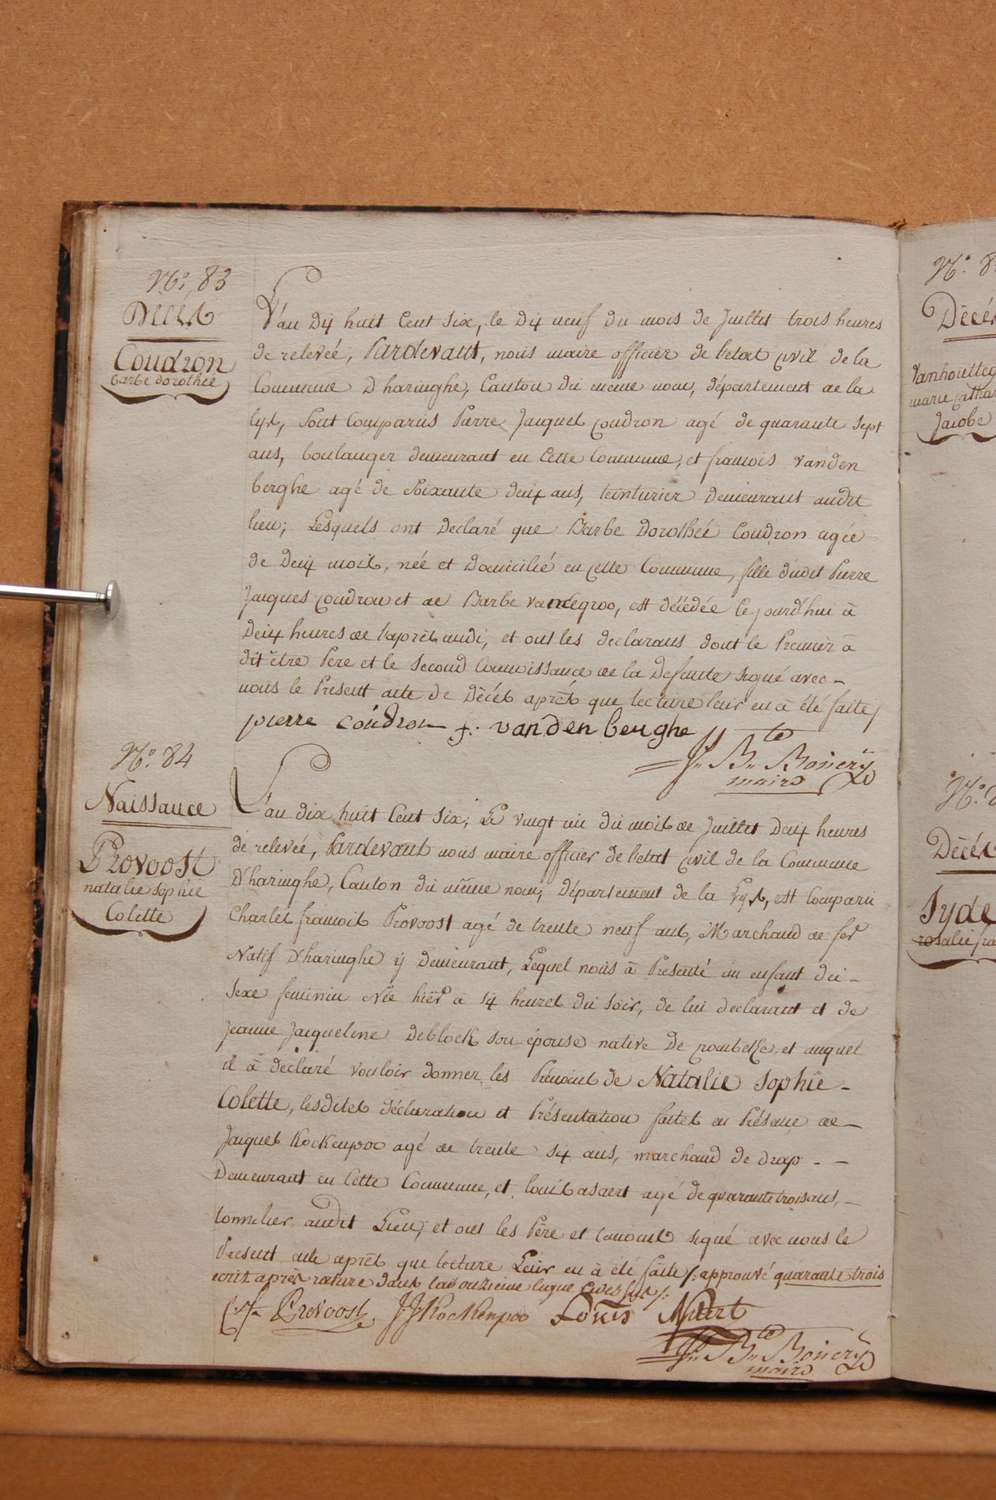 No. 83
Décès
Coudron
barbe dorothée
L'an dix huit Cent Six, le dix neuf du mois de Juillet trois heures
de relevéé, Pardevant, nous maire officier de l'etat civil de la
Commune D'haringhe, Canton du même nom, département de la
Lys, sont Comparus Pierre Jacques Coudron agé de quarante sept
ans, boulanger demeurant en Cette Commune, et francois vanden
berghe agé de Soixante deux ans, teinturier Demeurant audit
lieu; Lesquels ont Declaré que Barbe Dorothéé Coudron agée
de Deux mois, née et Domicilié en cette Commune, fille dudit Pierre
Jacques Coudron et de Barbe vandegroo, est décédée Cejourd'hui à
Deux heures de l'aprés midi, et ont les declarans dont le Premier à
dit être Pere et le second Connoissance de la Defunte signé avec
nous le Present acte de Décés aprés que lecture leur en a été faite
pierre coudron f. vanden berghe
Jn Bte Bn Boiiery
maire
No. 84
Naissance
Provoost
natalie sophie
Colette
L'an dix huit Cent Six, Le vingt un du mois de Juillet Deux heures
de relevéé, Pardevant nous maire officier de l'etat civil de la Commune
D'haringhe, Canton du même nom, Département de la Lys, est Comparu
Charles francois Provoost agé de trente neuf ans, Marchand de fer
Natif D'haringhe ÿ Demeurant, Lequel nous à Presenté un enfant du
Sexe feminin Née hier à six heures du soir, de lui declarant et de
Jeanne Jacqueline Deblock son épouse native De rousbecke, et auquel
il à déclaré vouloir donner les Prénoms de Natalie Sophie
Colette, lesdites déclaration et Présentation faites en Présence de
Jacques Rockenpoo agé de trente six ans, marchand de drap
Demeurant en Cette Commune, et louis asaert agé de quarante trois ans,
tonnelier audit Lieu, et ont les Pére et temoins signé avec nous le
Present acte aprés que lecture Leur en à été faite /: approuvé quarante trois
ecrit après rature dans la onzieme ligne :/
C. f. Provoost J J Rockenpoo Louis Assaert
Jn Bte Bn Boiiery
maire
No. 8
Décés
Vanhoutteg
marie catha
Jacobe
No. 8
Décés
Tyde
rosalie fra